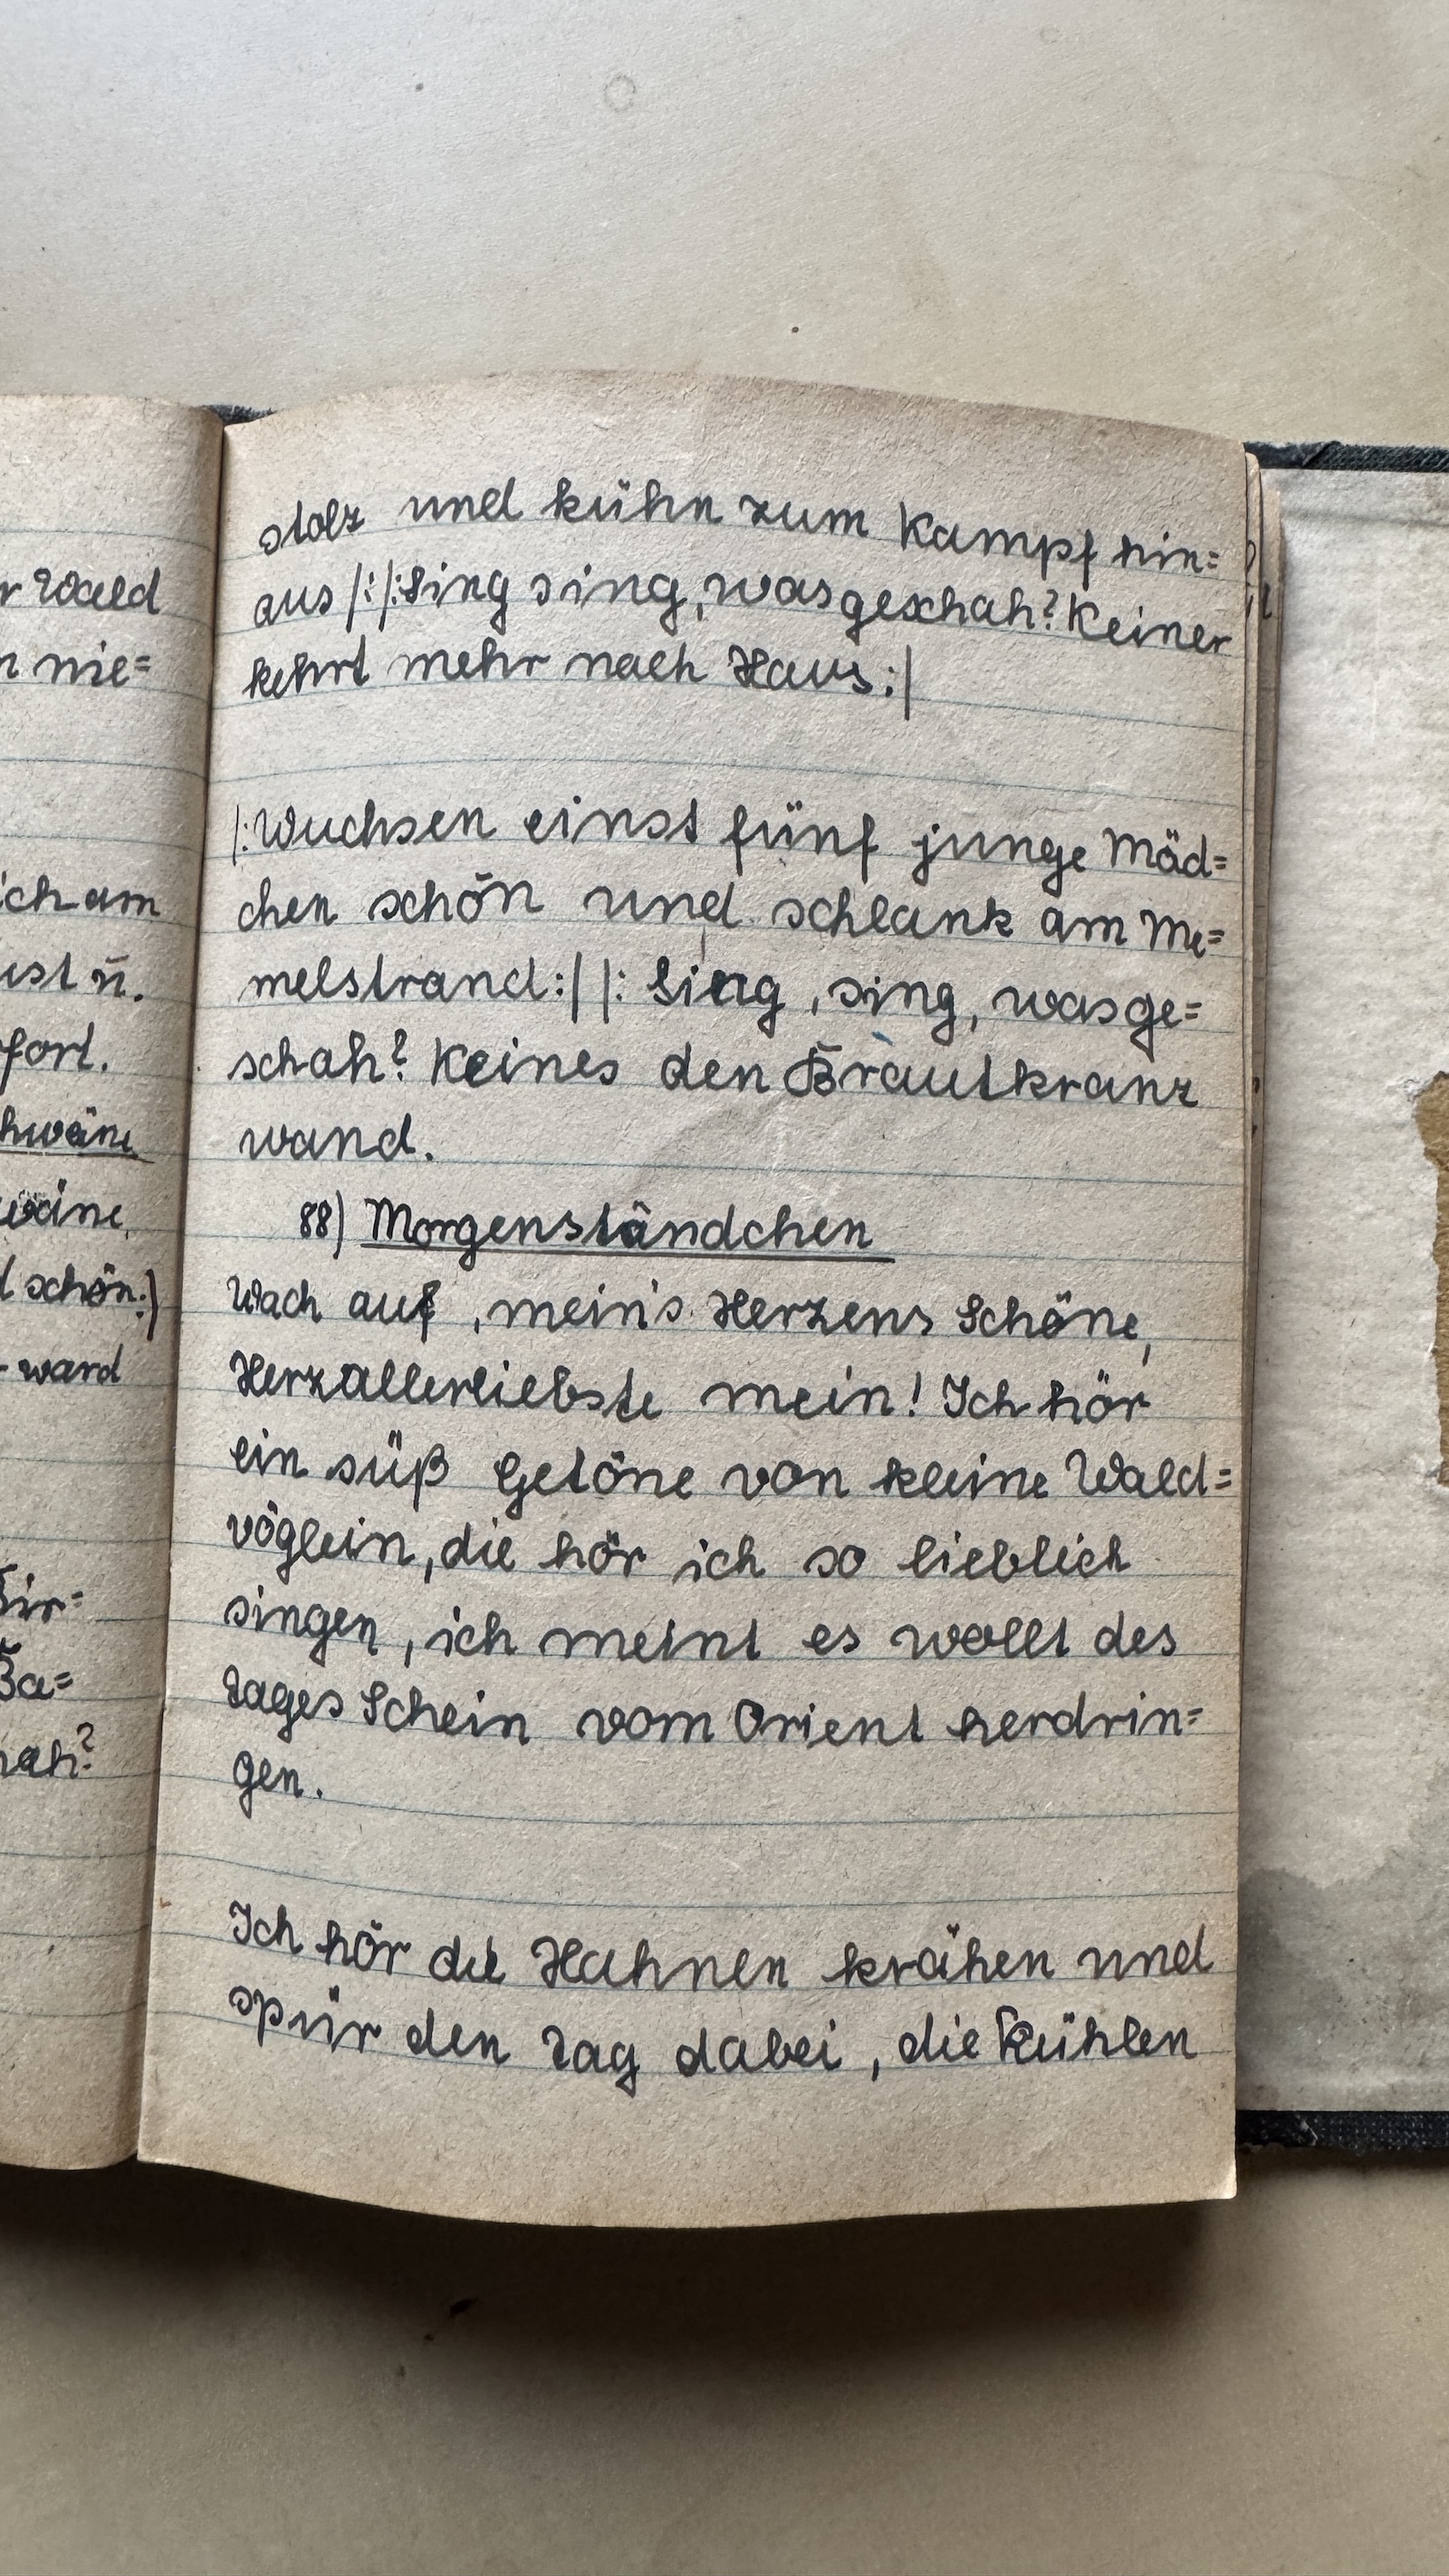 r Wald
n nie=
ich am
ust ū.
fort.
hwäne
wäne,
d schön:)
ward
Bir=
Ba=
hah?
stolz und kühn zum Kampf hin=
aus /:/:Sing sing, was geschah? Keiner
kehrt mehr nach Haus:|
|:Wuchsen einst fünf junge Mäd=
chen schön und schlank am Me=
melstrand:| |: Sing, sing, was ge=
schah? Keines den Brautkranz
wand.
88) Morgenständchen
Wach auf, mein's Herzens Schöne,
Herzallerliebste mein! Ich hör
ein süß Getöne von kleine Wald=
vöglein, die hör ich so lieblich
singen, ich meint es wollt des
Tages Schein vom Orient herdrin=
gen.
Ich hör die Hahnen krähen und
spür den Tag dabei, die kühlen